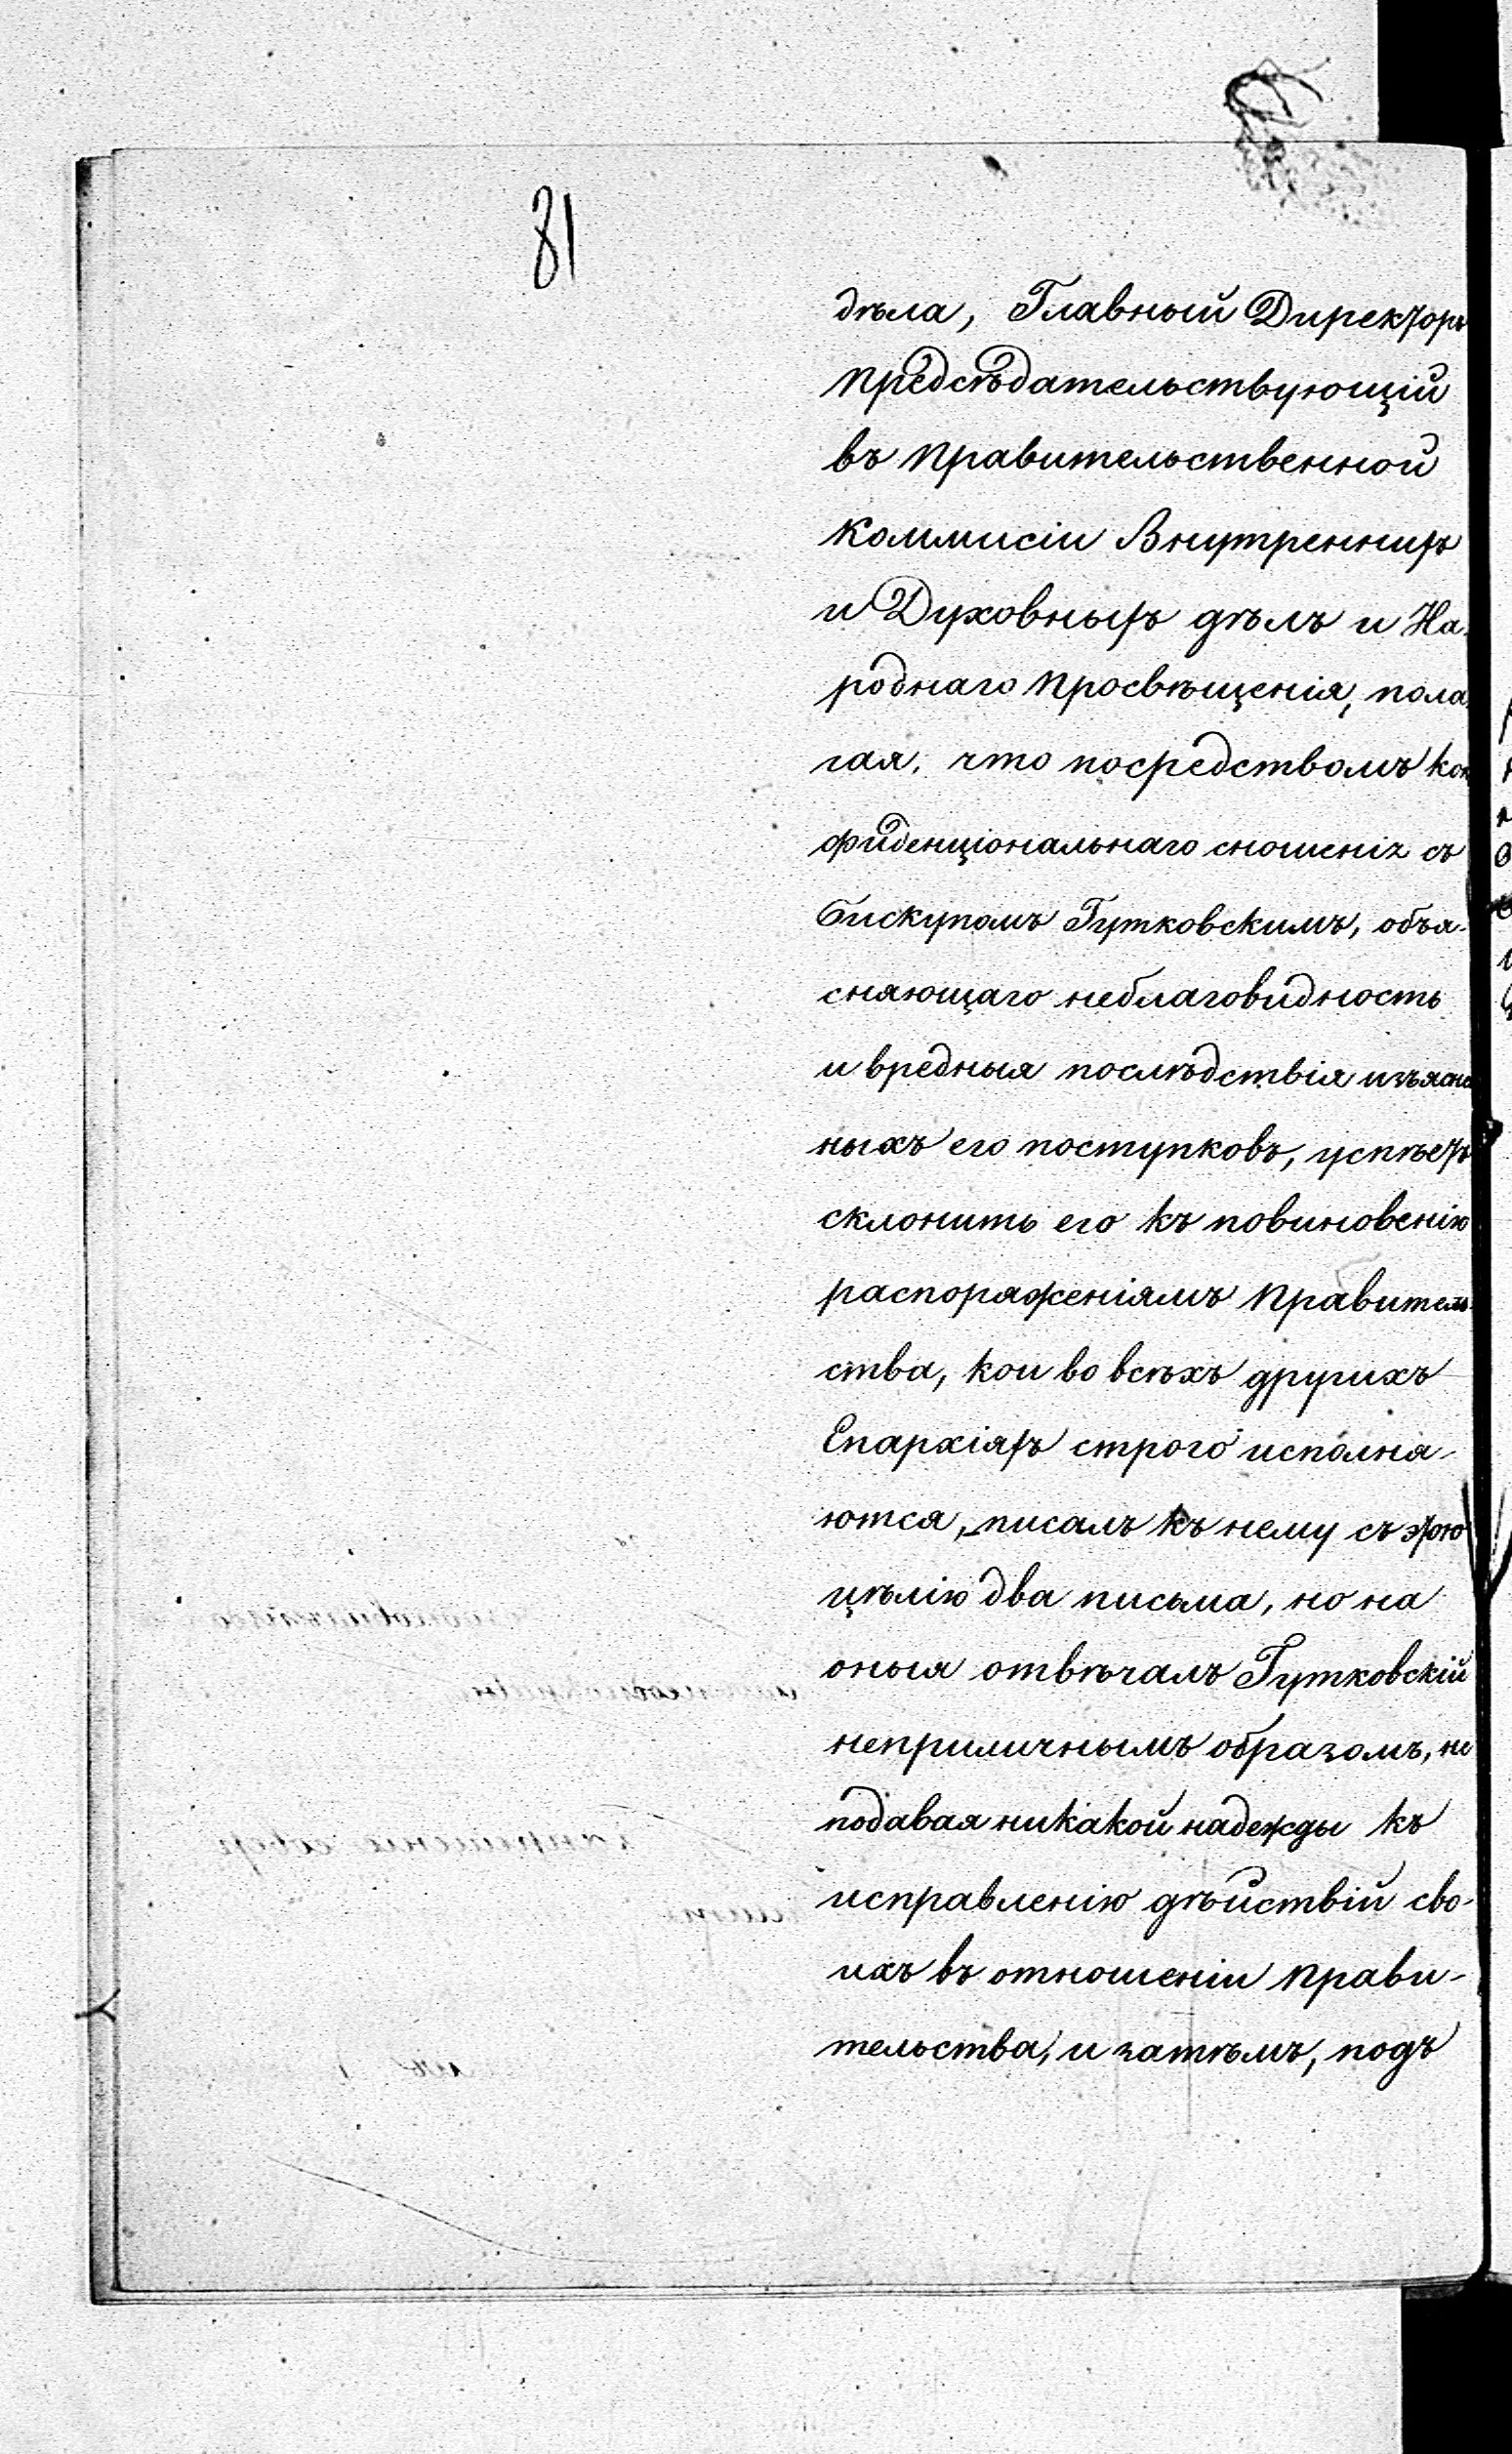 81
дѣла, Главный Директоръ
предсѣдательствующій
въ Правительственной
Коммисіи Внутреннихъ
и Духовныхъ дѣлъ и На-
роднаго Просвѣщенія, пола-
гая, что посредствомъ кон
фиденціональнаго сношенія съ
Бискупомъ Гутковскимъ, объя-
сняющаго неблаговидность
и вредныя послѣдствія изъясне
ныхъ его поступковъ, успѣетъ
склонить его къ повиновенію
распоряженіямъ Правитель-
ства, кои во всѣхъ другихъ
Епархіяхъ строго исполня-
ются, писалъ къ нему съ этою
цѣлію два письма, но на
оныя отвѣчалъ Гутковскій
неприличнымъ образомъ, не
подавая никакой надежды къ
исправленію дѣйствій сво-
ихъ въ отношеніи Прави-
тельства, и затѣмъ, подъ